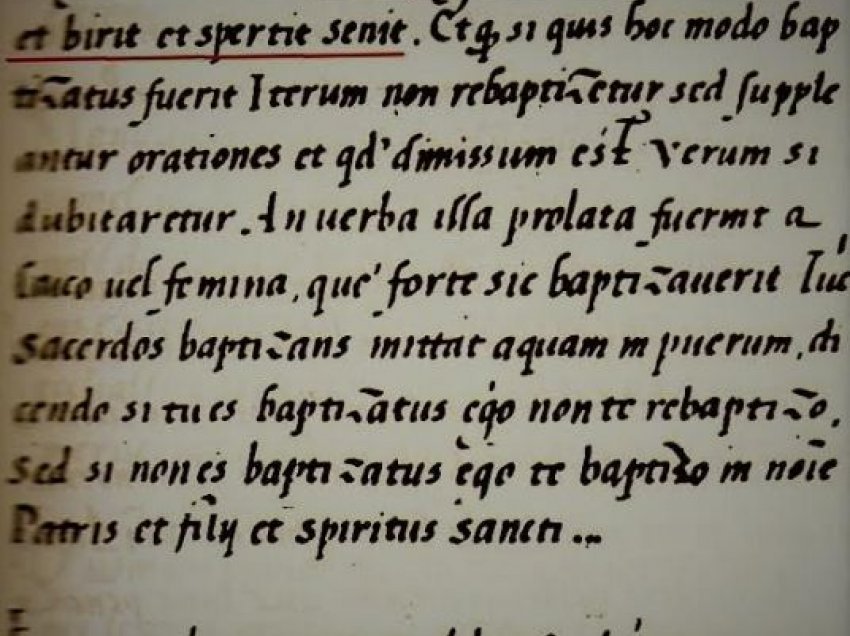 et birit et spertit senit. Et qꝫ si quis hoc modo bap
tizatus fuerit Iterum non rebaptizetur sed supple
antur orationes et qd' dimissum est Verum si
dubitaretur. An uerba illa prolata fuerint a
Laico uel femina, que' forte sic baptizauerit Tuc
Sacerdos baptizans mittat aquam in puerum, di
cendo si tu es baptizatus ego non te rebaptizo,
Sed si non es baptizatus ego te baptizo in noīe
Patris et filij et spiritus sancti...